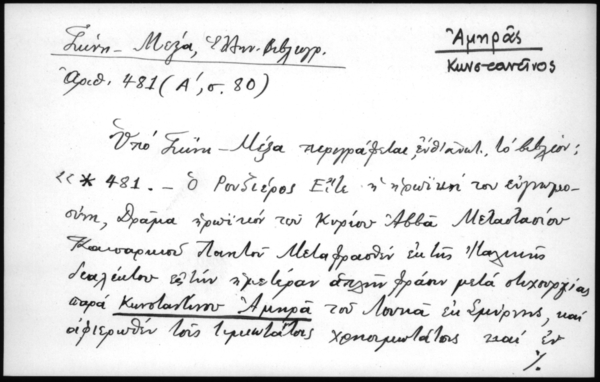 Γκίνη - Μέξα, Ἑλλην. Βιβλιογρ.
Ἀμηρᾶς
Κωνσταντῖνος
Ἀριθ. 481 (Α΄, σ. 80)
Ὑπό Γκίνη - Μέξα περιγράφεται, ἐνθ' ἀνωτ., τό βιβλίον:
«* 481. - Ὁ Ρουτζιέρος Εἴτε ἡ ἡρωϊκή του εὐγνωμο-
σύνη, Δρᾶμα ἡρωϊκόν τοῦ Κυρίου Ἀββᾶ Μεταστασίου
Καισαρικοῦ Ποιητοῦ Μεταφρασθέν ἐκ τῆς Ἰταλικῆς
διαλέκτου εἰς τήν ἡμετέραν ἁπλῆν φράσιν μετά στιχουργίας
παρά Κωνσταντίνου Ἀμηρᾶ τοῦ Λουκᾶ ἐκ Σμύρνης, καί
ἀφιερωθέν τοῖς τιμιωτάτοις χρησιμωτάτοις καί ἐν
%